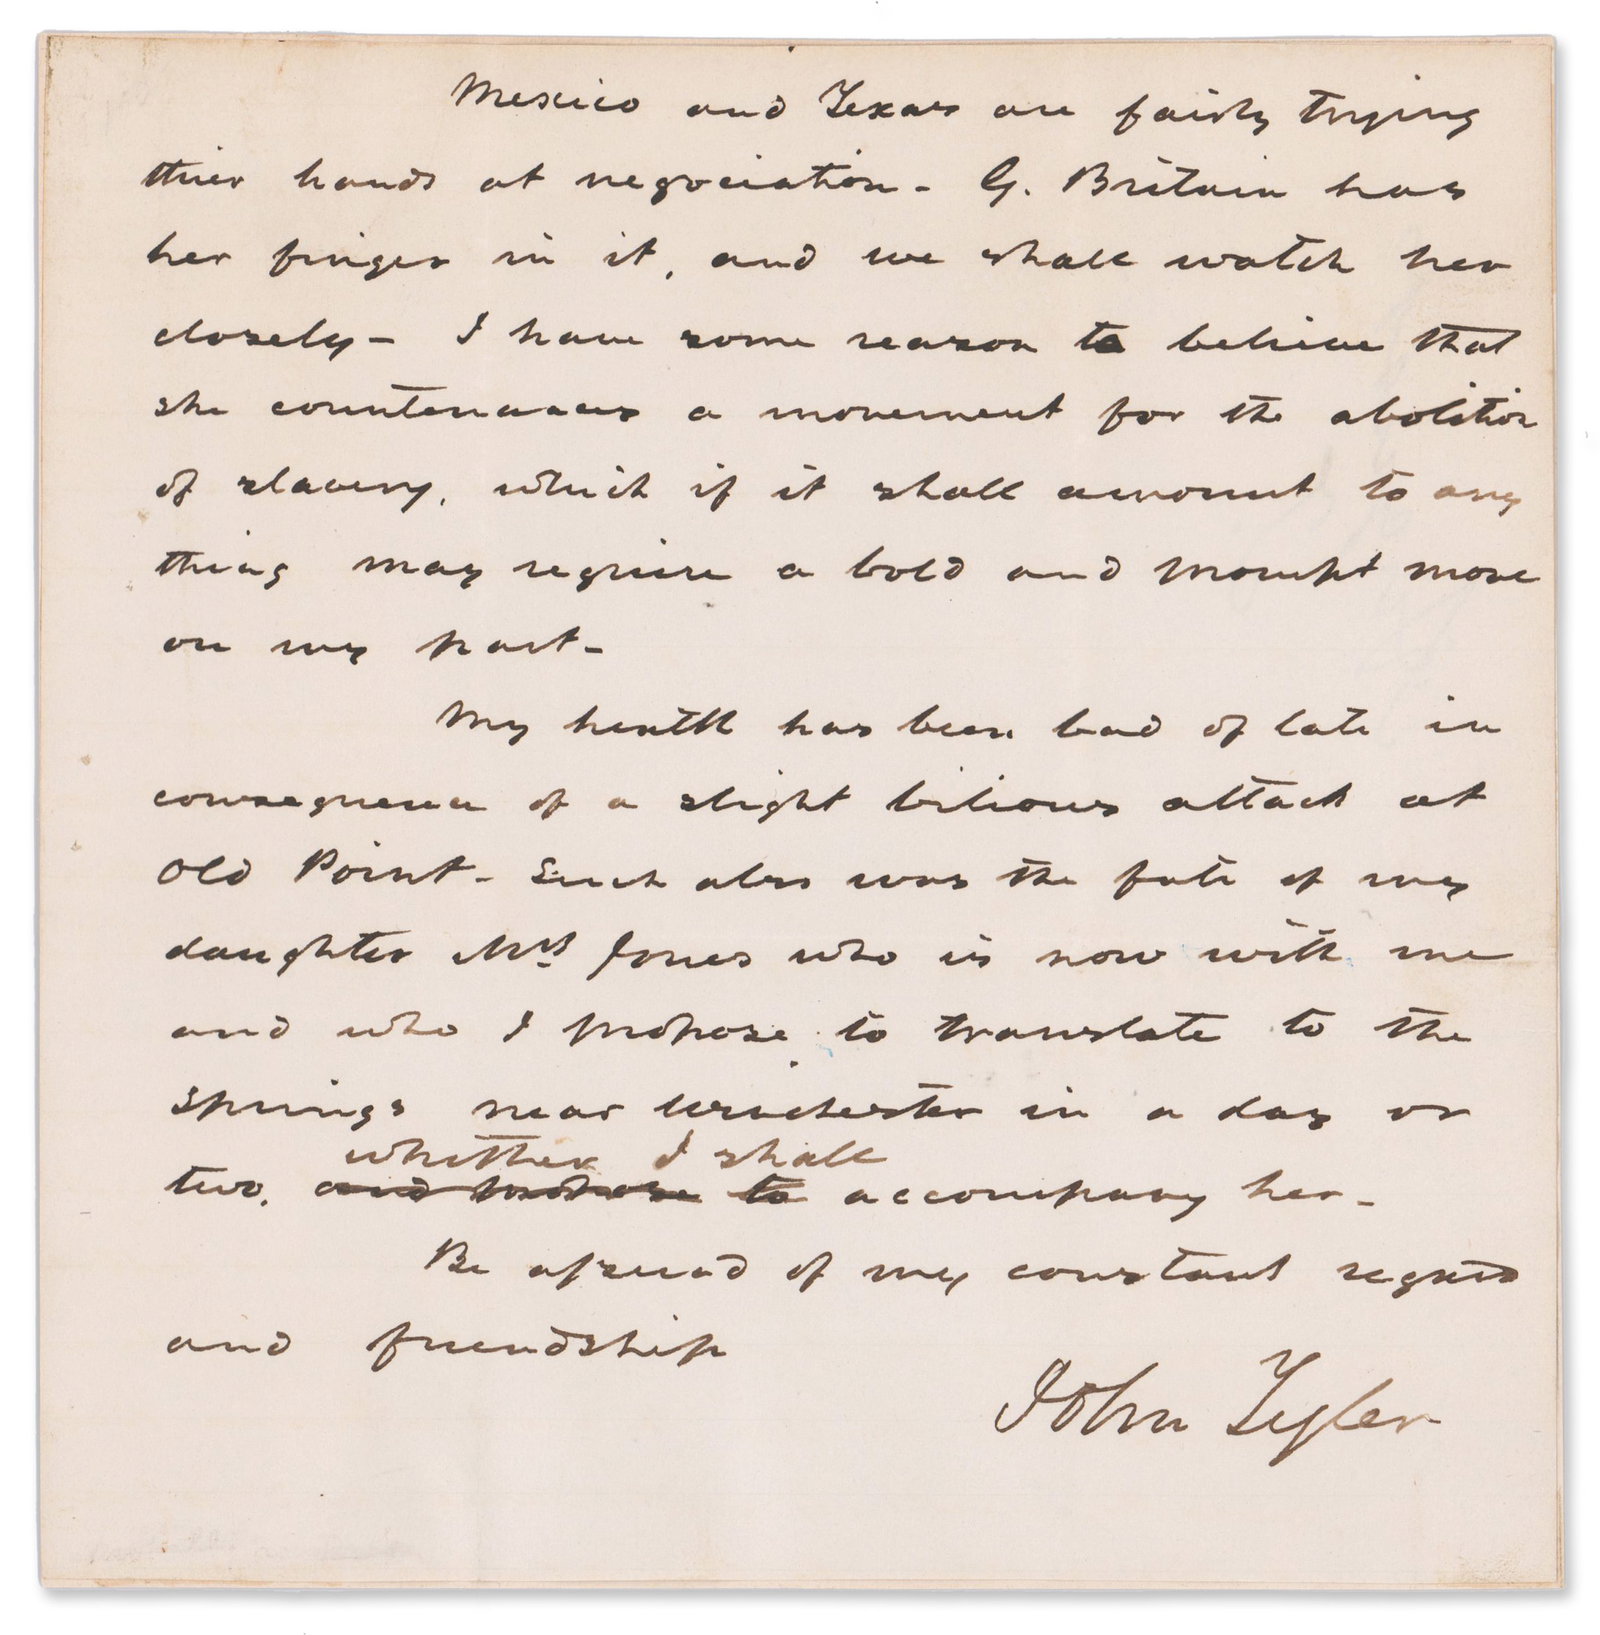 Mexico and Texas are fairly trying
thier hands at negociation - G. Britain has
her finger in it, and we shall watch her
closely - I have some reason to believe that
she countenances a movement for the abolition
of slavery, which if it shall amount to any
thing may require a bold and prompt move
on my part -
My health has been bad of late in
consequence of a slight bilious attack at
Old Point - Such also was the fate of my
daughter Mrs Jones who is now with me
and who I propose to translate to the
springs near Winchester in a day or
whither I shall
two, and propose to accompany her -
Be assured of my constant regard
and friendship
John Tyler